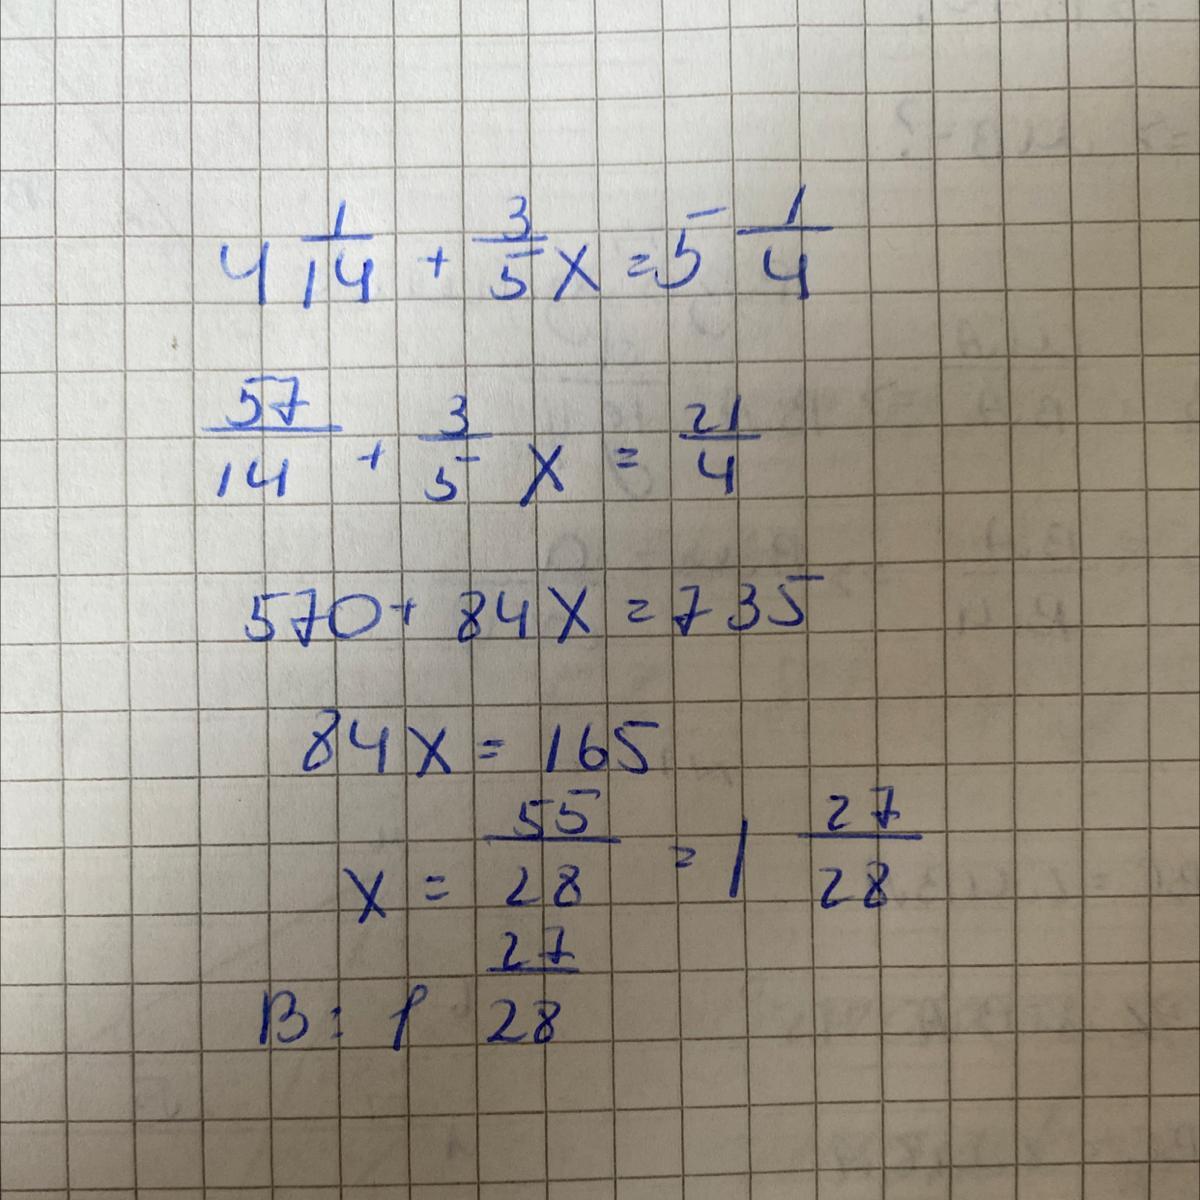 4 1/14 + 3/5 x = 5 1/4
57/14 + 3/5 x = 21/4
570 + 84x = 735
84x = 165
x = 55/28 = 1 27/28
B: 1 27/28